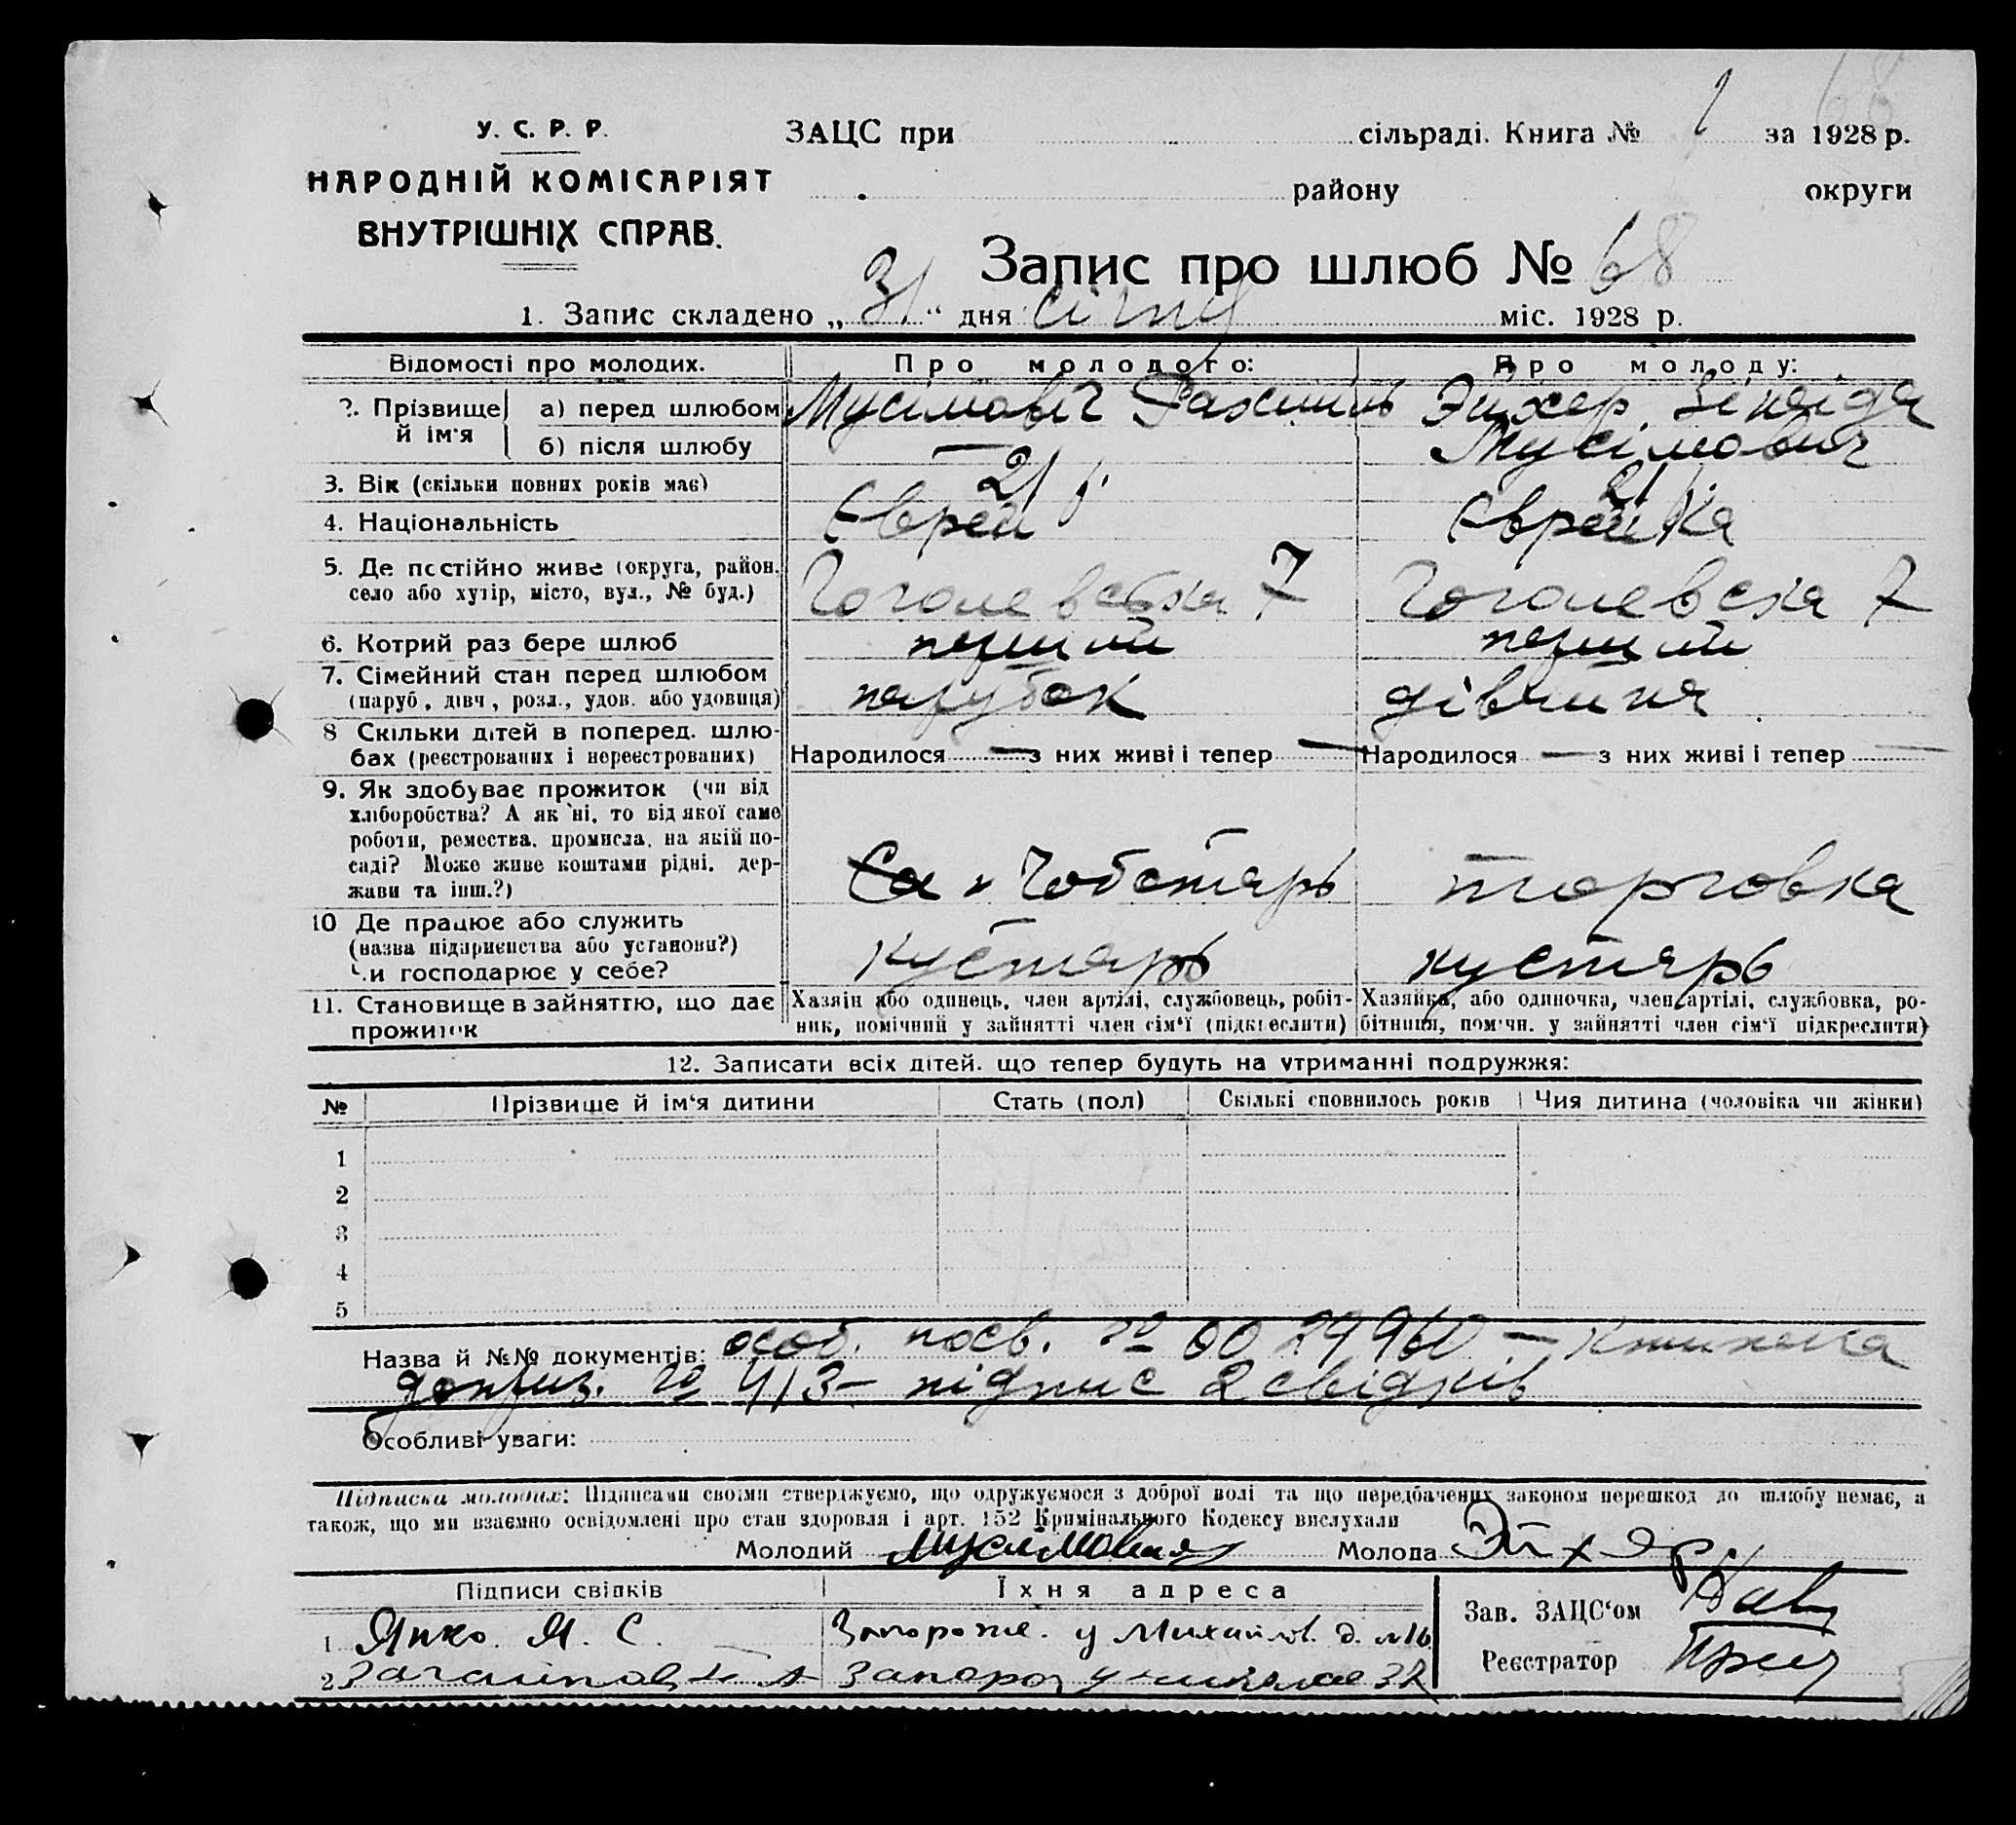 68
У. С. Р. Р.
НАРОДНІЙ КОМІСАРІЯТ
ВНУТРІШНІХ СПРАВ.
ЗАЦС при сільраді. Книга № за 1928 р.
району округи
Запис про шлюб № 68
1. Запис складено „31“ дня січня міс. 1928 р.
Відомості про молодих. Про молодого: Про молоду:
2. Прізвище й ім'я а) перед шлюбом Мусімовіч Рахмиль Эйхер Зінаіда
б) після шлюбу — Мусімович
3. Вік (скільки повних років має) 21 р. 21 р.
4. Національність Єврей Єврейка
5. Де постійно живе (округа, район, село або хутір, місто, вул., № буд.) Гоголевська 7 Гоголевска 7
6. Котрий раз бере шлюб перший перший
7. Сімейний стан перед шлюбом (паруб, дівч, розл., удов. або удовиця) парубок дівчина
8 Скільки дітей в поперед. шлюбах (реєстрованих і нереєстрованих) Народилося — з них живі і тепер — Народилося — з них живі і тепер —
9. Як здобуває прожиток (чи від хліборобства? А як ні, то від якої саме роботи, ремества, промисла, на якій посаді? Може живе коштами рідні, держави та інш.?) Чоботарь торговка
10 Де працює або служить (назва підприємства або установи?) Чи господарює у себе? кустарь кустарь
11. Становище в зайняттю, що дає прожиток Хазяін або одинець, член артілі, службовець, робітник, помічний у зайнятті член сім'ї (підкреслити) Хазяйка, або одиночка, член артілі, службовка, робітниця, помічн. у зайнятті член сім'ї підкреслити)
12. Записати всіх дітей, що тепер будуть на утриманні подружжя:
№ Прізвище й ім'я дитини Стать (пол) Скількі сповнилось років Чия дитина (чоловіка чи жінки)
1
2
3
4
5
Назва й №№ документів: особ. посв. № 6029960 —
№ 413 — підпис 2 свідків
Особливі уваги:
Підписи молодих: Підписами своіми стверджуємо, що одружуємося з доброї волі та що передбачених законом перешкод до шлюбу немає, а
також, що ми взаємно освідомлені про стан здоровля і арт. 152 Кримінального Кодексу вислухали
Молодий Мусимович Молода Эйхер
Підписи свідків Їхня адреса
1 Янко. Я. С. Запороже. у Михайлов. д. №16
2 Запорож
Зав. ЗАЦС'ом
Реєстратор